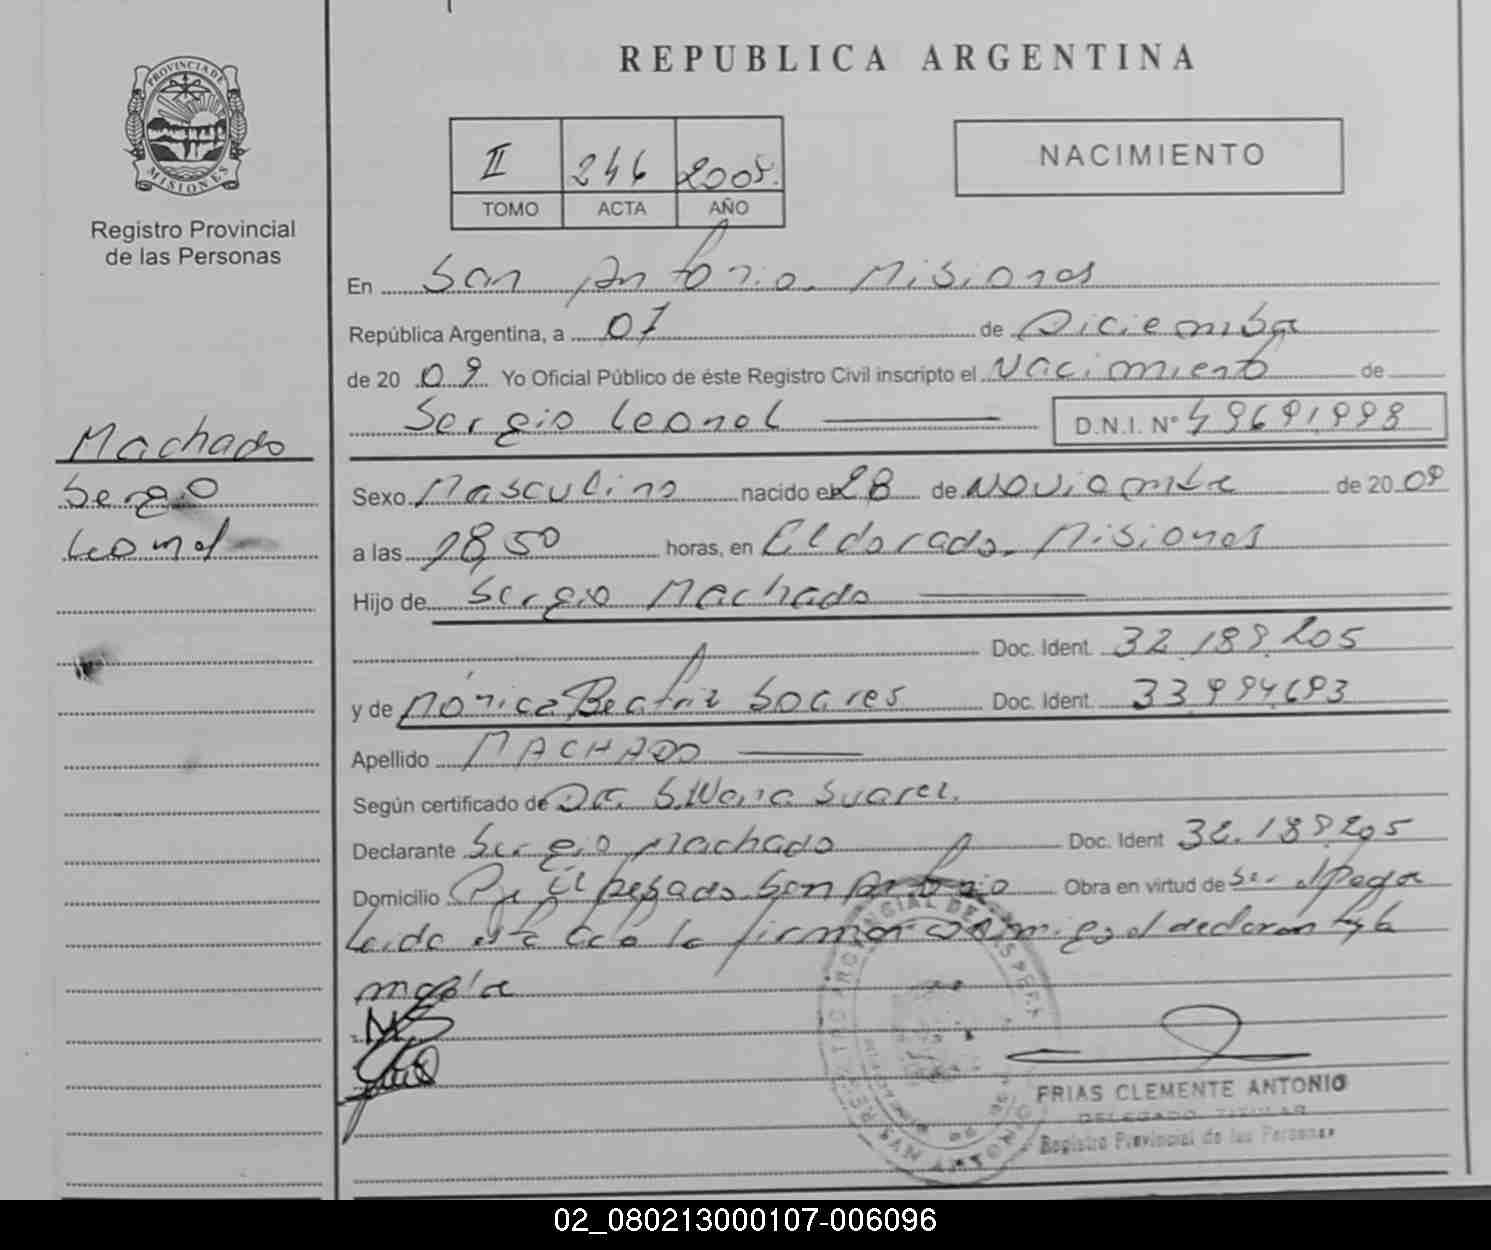 PROVINCIA DE
MISIONES
Registro Provincial
de las Personas
REPUBLICA ARGENTINA
II 246 2009.
TOMO ACTA AÑO
NACIMIENTO
En San Antonio. Misiones
República Argentina, a 01 de Diciembre
de 20 09 Yo Oficial Público de éste Registro Civil inscripto el Nacimiento de
Sergio Leonel D.N.I. N° 49691998
Machado
Sergio
Leonel
Sexo Masculino nacido el 28 de Noviembre de 20 09
a las 18,50 horas, en Eldorado. Misiones
Hijo de Sergio Machado
Doc. Ident. 32.189.205
y de Mónica Beatriz Soares Doc. Ident. 33.994.693
Apellido MACHADO
Según certificado de Dra. Silvana Suarez.
Declarante Sergio Machado Doc. Ident 32.189.205
Domicilio El pesado San Antonio Obra en virtud de Ser el Padre
Leida esta acta la firman conmigo el declarante y la
madre
MS
REGISTRO PROVINCIAL DE LAS PERSONAS
SAN ANTONIO
FRIAS CLEMENTE ANTONIO
DELEGADO TITULAR
Registro Provincial de las Personas
02_080213000107-006096